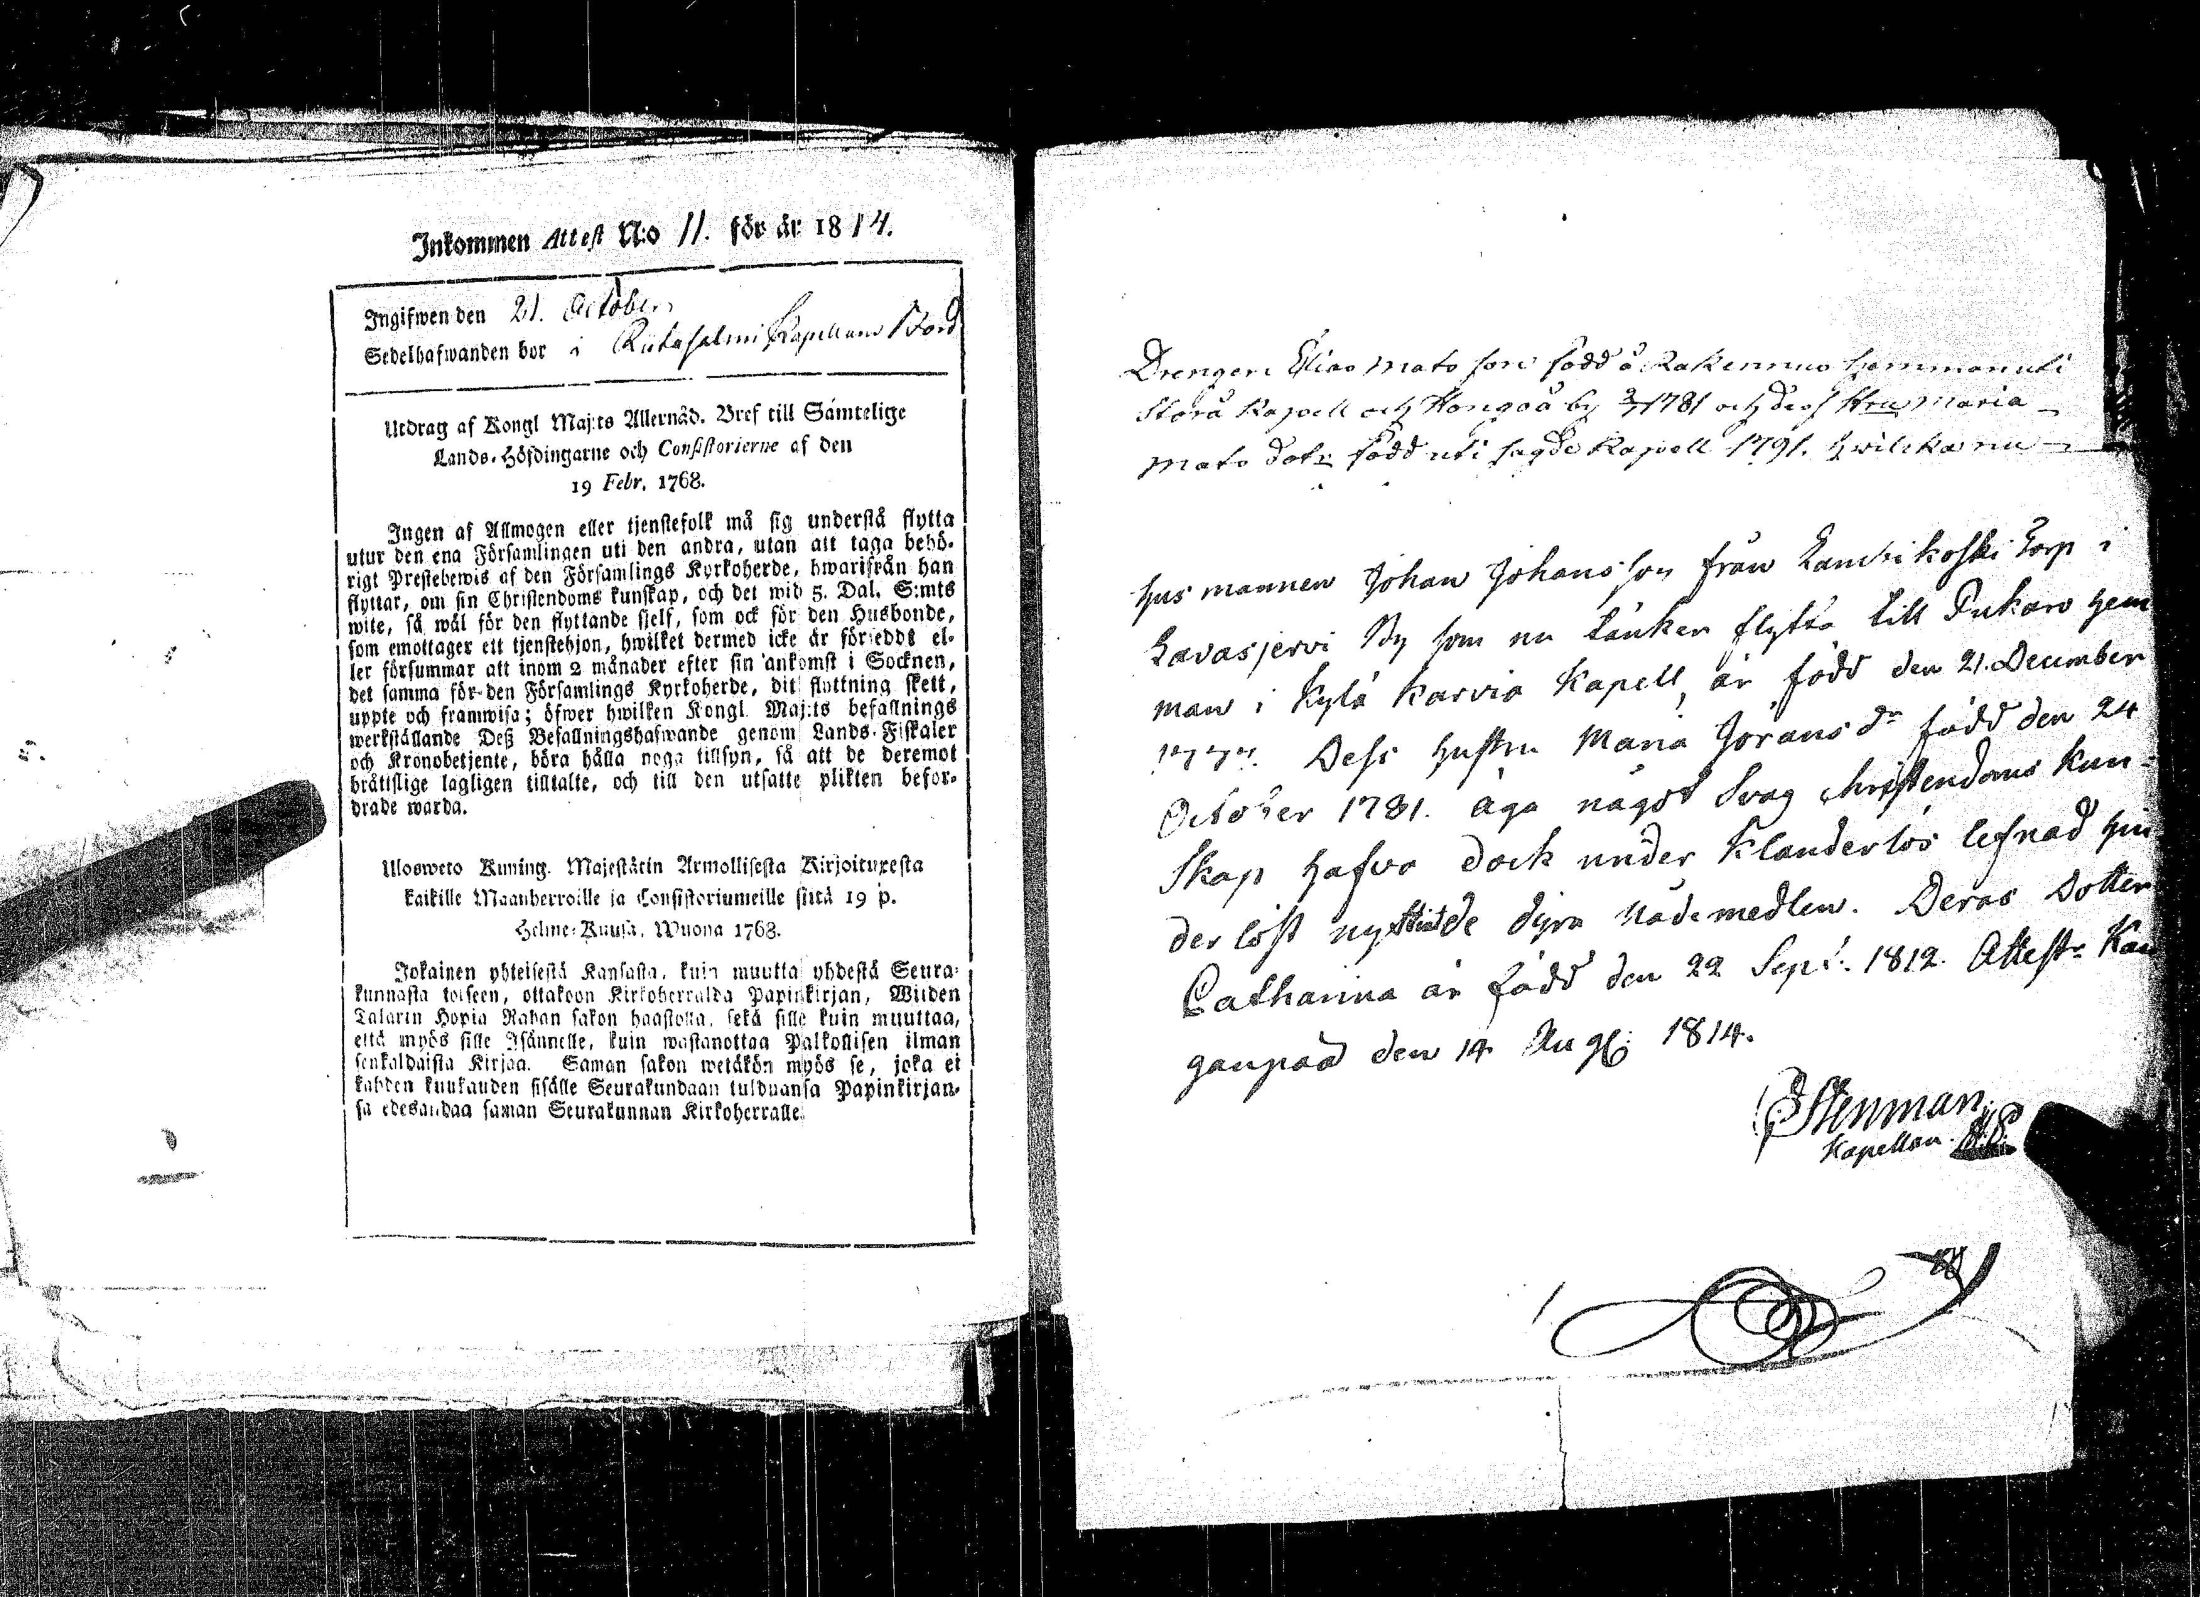 Inkommen Attest N:o 11. för år 1814.
Ingifwen den 21. October
Sedelhafwanden bor i Kapellans Bord
Utdrag af Kongl Maj:ts Allernåd. Bref till Samtelige
Lands-Höfdingarne och Consistorierne af den
19 Febr. 1768.
Ingen af Allmogen eller tjenstefolk må sig understå flytta
utur den ena Församlingen uti den andra, utan att taga behö-
rigt Prestebewis af den Församlings Kyrkoherde, hwarifrån han
flyttar, om sin Christendoms kunskap, och det wid 5. Dal. S:mts
wite, så wäl för den flyttande sjelf, som ock för den Husbonde,
som emottager ett tjenstehjon, hwilket dermed icke är förseddt el-
ler försummar att inom 2 månader efter sin ankomst i Socknen,
det samma för den Församlings Kyrkoherde, dit flyttning skett,
uppte och framwisa; öfwer hwilken Kongl. Maj:ts befallnings
werkställande Deß Befallningshafwande genom Lands-Fiskaler
och Kronobetjente, böra hålla noga tillsyn, så att de deremot
bråtislige lagligen tilltalte, och till den utsatte plikten befor-
drade warda.
Ulosweto Kuning. Majestätin Armollisesta Kirjoituxesta
kaikille Maanherroille ja Consistoriumeille siitä 19 p.
Helme-Kuusa, Wuona 1768.
Jokainen yhteisestä Kansasta, kuin muutta yhdestä Seura-
kunnasta toiseen, ottakoon Kirkoherralda Papinkirjan, Wiiden
Talarin Hopia Rahan sakon haastolla, sekä sille kuin muuttaa,
että myös sille Isännelle, kuin wastanottaa Palkollisen ilman
senkaldaista Kirjaa. Saman sakon wetäkön myös se, joka ei
kahden kuukauden sisälle Seurakundaan tulduansa Papinkirjan-
sa edesandaa saman Seurakunnan Kirkoherralle.
Drengen Elias Mats son född å Rakennus hemman uti
Storå Kapell och Kongså by 1781 och dess Hru Maria
Mats dotr född uti sagde Kapell 1791. hwilka nu
Husmannen Johan Johansson från Lambikoski Torp i
Lavasjervi By som nu tänker flytta till Pukaro hem
man i Kylä Karvia Kapell, är född den 21. December
1777. Dess hustru Maria Jörans dr född den 24
October 1781. äga något svag christendoms kun-
skap hafva dock under klanderlös lefnad hin
derlöst nyttiat de dyra nådemedlen. Deras Dotter
Catharina är född den 22 Sept. 1812. Attestr Kan
ganpää den 14 Aug: 1814.
Stenman.
Kapellan.